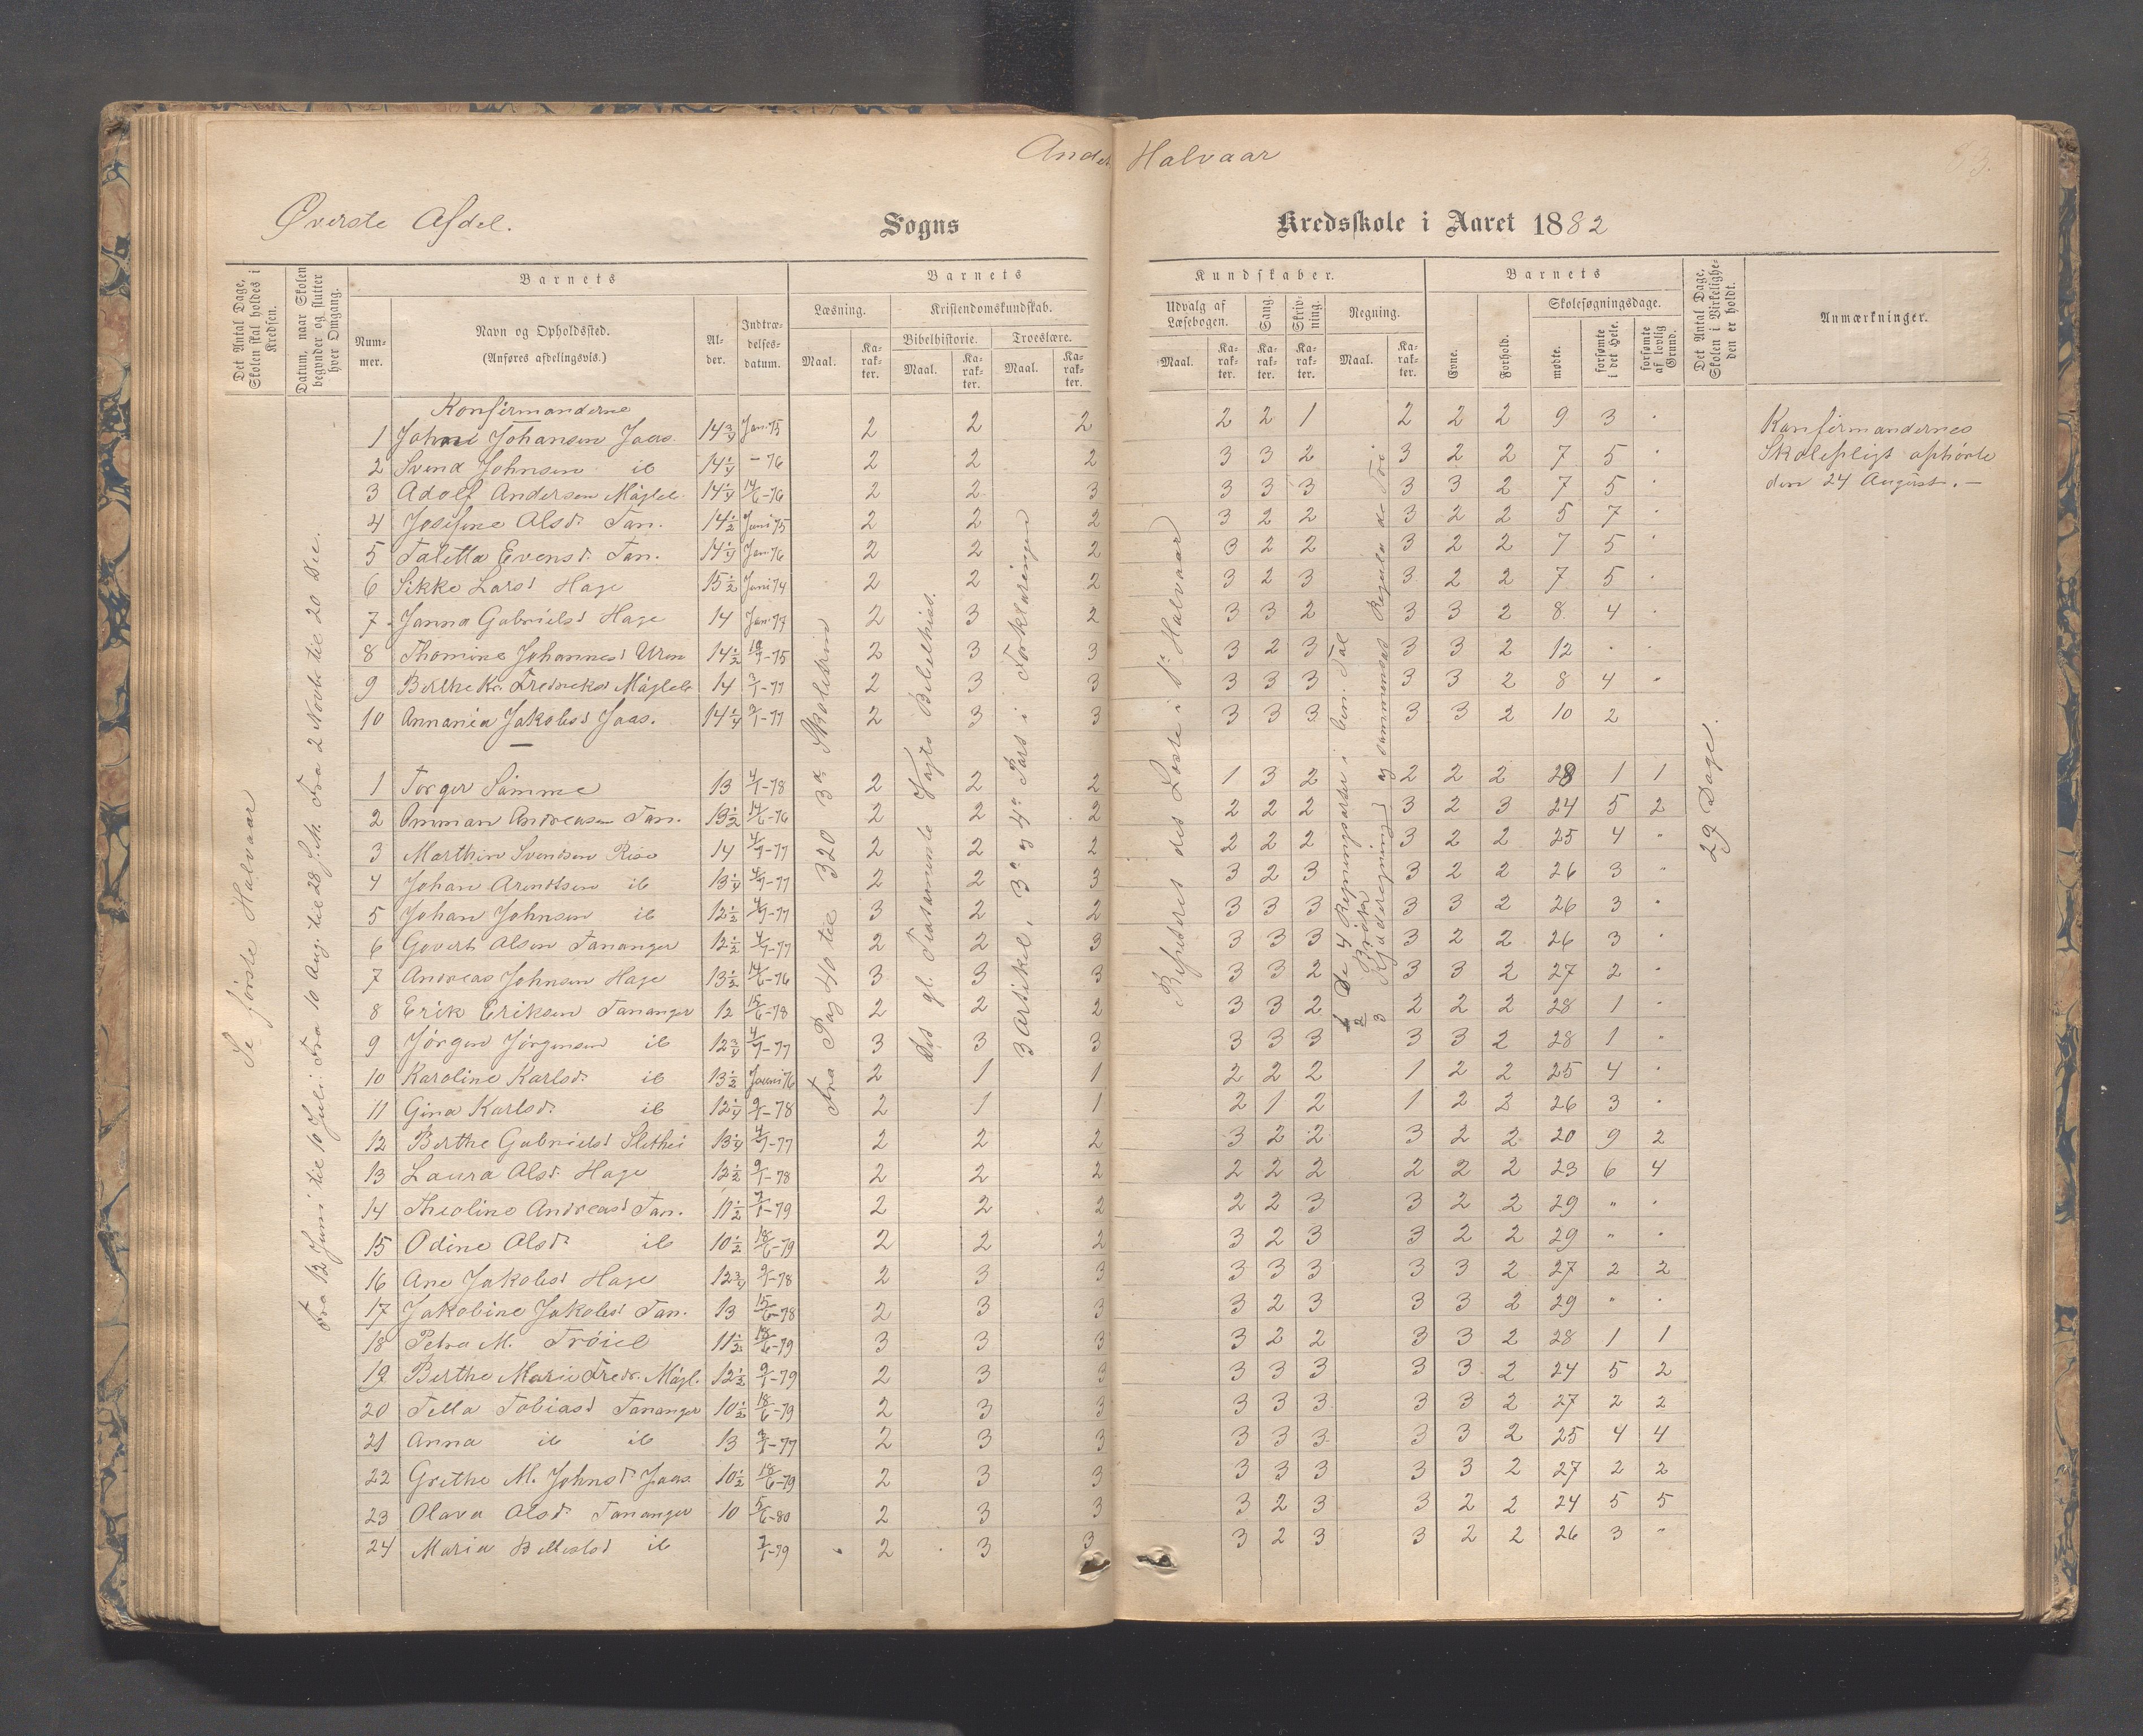 Andet Halvaar
Øverste Afdel.
Sogns
Kredsskole i Aaret 1882
Det Antal Dage, Skolen skal holdes i Kredsen.
Datum, naar Skolen begynder og slutter hver Omgang.
Barnets
Nummer.
Navn og Opholdssted.
(Anføres afdelingsvis.)
Alder.
Indtrædelsesdatum.
Barnets
Læsning.
Maal.
Karakter.
Kristendomskundskab.
Bibelhistorie.
Maal.
Karakter.
Troeslære.
Maal.
Karakter.
Kundskaber.
Udvalg af Læsebogen.
Maal.
Karakter.
Sang.
Karakter.
Skrivning.
Karakter.
Regning.
Maal.
Karakter.
Barnets
Evne.
Forhold.
Skolesøgningsdage.
mødte.
forsømte i det Hele.
forsømte af lovlig Grund.
Det Antal Dage, Skolen i Virkeligheden er holdt.
Anmærkninger.
Se første Halvaar
Fra 12 Juni til 10 Juli. Fra 10 Aug. til 28 s. M. Fra 2 Novbr til 20 Dec.
Fra Pag 40 til 320 3die Skoletrin
Det gl. Testamente Vogts Bibelhist.
3 Artikel, 3die og 4de Part i Forklaringen
Repeteret det Læste i 1ste Halvaar
De 4 Regningsarter i ben. Tal
Brøk
Kjæderegning og sammensat Regula de Tri
29 Dage.
Konfirmandernes
Skolepligt ophørte
den 24 August. —
Konfirmanderne
1 Johan Johansen Jaas. 14 3/4 Jan. 75 2 2 2 2 2 1 2 2 2 9 3 .
2 Svend Johnsen ib 14 1/4 – 76 2 2 2 3 3 2 3 2 2 7 5 .
3 Adolf Andersen Mágleb 14 1/4 14/6-76 2 2 3 3 3 3 3 3 2 7 5 .
4 Josefine Olsd. Tan. 14 1/2 Juni 75 2 2 2 3 2 2 3 2 2 5 7 .
5 Taletta Evensd. Tan. 14 1/4 Jan. 76 2 2 2 3 2 2 3 2 2 7 5 .
6 Sikke Larsd Hage 15 1/2 Juni 74 2 2 2 3 2 3 3 2 2 7 5 .
7 Janna Gabrielsd Hage 14 Jan. 77 2 3 2 3 3 2 3 3 2 8 4 .
8 Thomine Johannesd Uren 14 1/2 10/7-75 2 3 3 3 2 3 3 3 2 12 . .
9 Berthe Kr. Fredriksd Mágleb 14 3/1-77 2 3 3 3 3 3 3 3 2 8 4 "
10 Annania Jakobsd Jaas. 14 1/4 3/1-77 2 3 3 3 3 3 3 3 2 10 2
1 Torger Sømme 13 4/1-78 2 2 2 1 3 2 2 2 2 28 1 1
2 Omman Andreasen Tan. 13 1/2 14/6-76 2 2 2 2 2 2 3 2 3 24 5 2
3 Marthin Svendsen Risa 14 4/7-77 2 2 2 2 2 2 3 2 2 25 4 "
4 Johan Arendtsen ib 13 1/4 4/7-77 2 2 3 3 2 3 3 2 2 26 3 "
5 Johan Johnsen ib 12 1/2 4/7-77 3 2 2 3 3 3 3 3 2 26 3 "
6 Govert Olsen Tananger 12 1/2 4/7-77 2 2 3 3 3 3 3 2 2 26 3 "
7 Andreas Johnsen Hage 13 1/2 14/6-76 3 3 3 3 3 2 3 3 2 27 2 "
8 Erik Eriksen Tananger 12 15/6-78 2 2 2 3 3 2 2 2 2 28 1 "
9 Jørgen Jørgensen ib 12 3/4 4/7-77 3 3 3 3 3 3 3 3 2 28 1 "
10 Karoline Karlsd. ib 13 1/2 Juni 76 2 1 1 2 2 2 1 2 2 25 4 .
11 Gina Karlsd. ib 12 1/4 9/1-78 2 1 1 2 1 2 1 2 2 26 3 .
12 Berthe Gabrielsd Slethei 13 1/4 4/7-77 2 2 2 3 2 2 3 2 2 20 9 2
13 Laura Olsd. Hage 12 1/2 9/1-78 2 2 2 2 2 2 2 2 2 23 6 4
14 Theoline Andreasd Tan. 11 1/2 7/1-79 2 2 2 2 2 3 3 2 2 29 " .
15 Odine Olsd. ib 10 1/2 18/6-79 2 2 2 3 2 3 3 2 2 29 " .
16 Ane Jakobsd Hage 12 3/4 9/1-78 2 3 3 3 3 3 3 3 2 27 2 2
17 Jakobine Jakobsd Tan. 13 15/6-78 2 3 3 3 2 3 3 3 2 29 " .
18 Petra M. Trøiel 11 1/2 18/6-79 3 3 3 3 2 2 3 3 2 28 1 1
19 Berthe Marie Fredr. Mágl. 12 1/2 9/1-79 2 3 3 3 3 3 3 3 2 24 5 2
20 Tella Tobiasd Tananger 10 1/2 18/6-79 2 3 3 3 3 3 3 3 2 27 2 2
21 Anna ib ib 13 3/1-77 2 3 3 3 3 3 3 3 2 25 4 4
22 Grethe M. Johnsd. Jaas. 10 1/2 18/6-79 2 3 3 3 3 3 3 3 2 27 2 2
23 Olava Olsd. Tananger 10 5/6-80 2 3 3 3 2 3 3 2 2 24 5 5
24 Maria ib 7/1-79 2 3 3 3 2 3 3 2 2 26 3 "